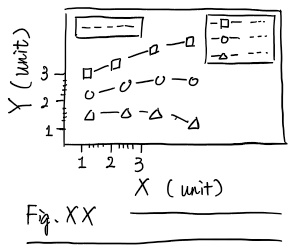 Y (unit)
3
2
1
1 2 3
X (unit)
Fig. XX